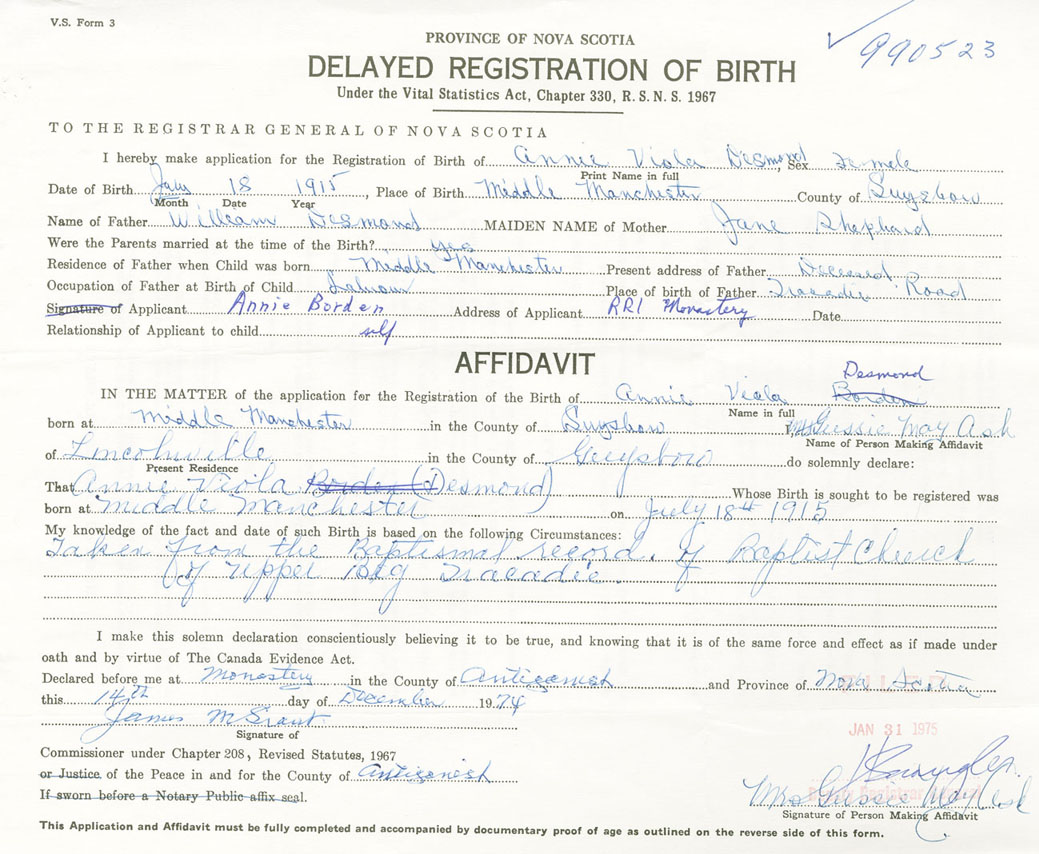 V.S. Form 3
990523
PROVINCE OF NOVA SCOTIA
DELAYED REGISTRATION OF BIRTH
Under the Vital Statistics Act, Chapter 330, R. S. N. S. 1967
TO THE REGISTRAR GENERAL OF NOVA SCOTIA
I hereby make application for the Registration of Birth of Annie Viola Desmond, Sex Female
Print Name in full
Date of Birth July 18 1915, Place of Birth Middle Manchester County of Guysboro
Month Date Year
Name of Father William Desmond MAIDEN NAME of Mother Jane Shephard
Were the Parents married at the time of the Birth? yes
Residence of Father when Child was born Middle Manchester Present address of Father Deceased
Occupation of Father at Birth of Child Labour Place of birth of Father Tracadie Road
Signature of Applicant Annie Borden Address of Applicant RR1 Monastery Date
Relationship of Applicant to child self
AFFIDAVIT
Desmond
IN THE MATTER of the application for the Registration of the Birth of Annie Viola Borden
Name in full
born at Middle Manchester in the County of Guysboro Mrs Gussie May Ash
Name of Person Making Affidavit
of Lincolnville in the County of Guysboro do solemnly declare:
Present Residence
That Annie Viola Borden (Desmond) Whose Birth is sought to be registered was
born at Middle Manchester on July 18th 1915
My knowledge of the fact and date of such Birth is based on the following Circumstances:
Taken from the Baptismal record. of Baptist Church
of Upper Big Tracadie.
I make this solemn declaration conscientiously believing it to be true, and knowing that it is of the same force and effect as if made under
oath and by virtue of The Canada Evidence Act.
Declared before me at Monastery in the County of Antigonish and Province of Nova Scotia
this 14th day of December 1974
James M Grant
Signature of
JAN 31 1975
Commissioner under Chapter 208, Revised Statutes, 1967
or Justice of the Peace in and for the County of Antigonish
If sworn before a Notary Public affix seal.
Mrs Gussie May Ash
Signature of Person Making Affidavit
This Application and Affidavit must be fully completed and accompanied by documentary proof of age as outlined on the reverse side of this form.